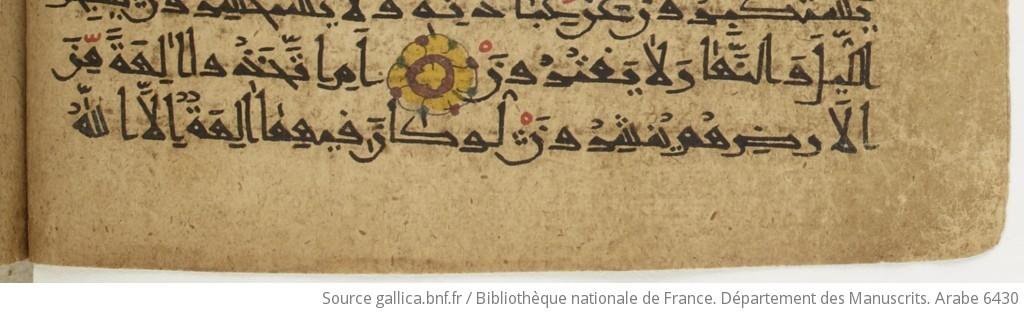 يستكبرون عن عبادته ولا يستحسرون
الليل والنهار لا يفترون ام اتخذوا الهة من
الارض هم ينشرون لو كان فيهما الهة الا الله
Source gallica.bnf.fr / Bibliothèque nationale de France. Département des Manuscrits. Arabe 6430